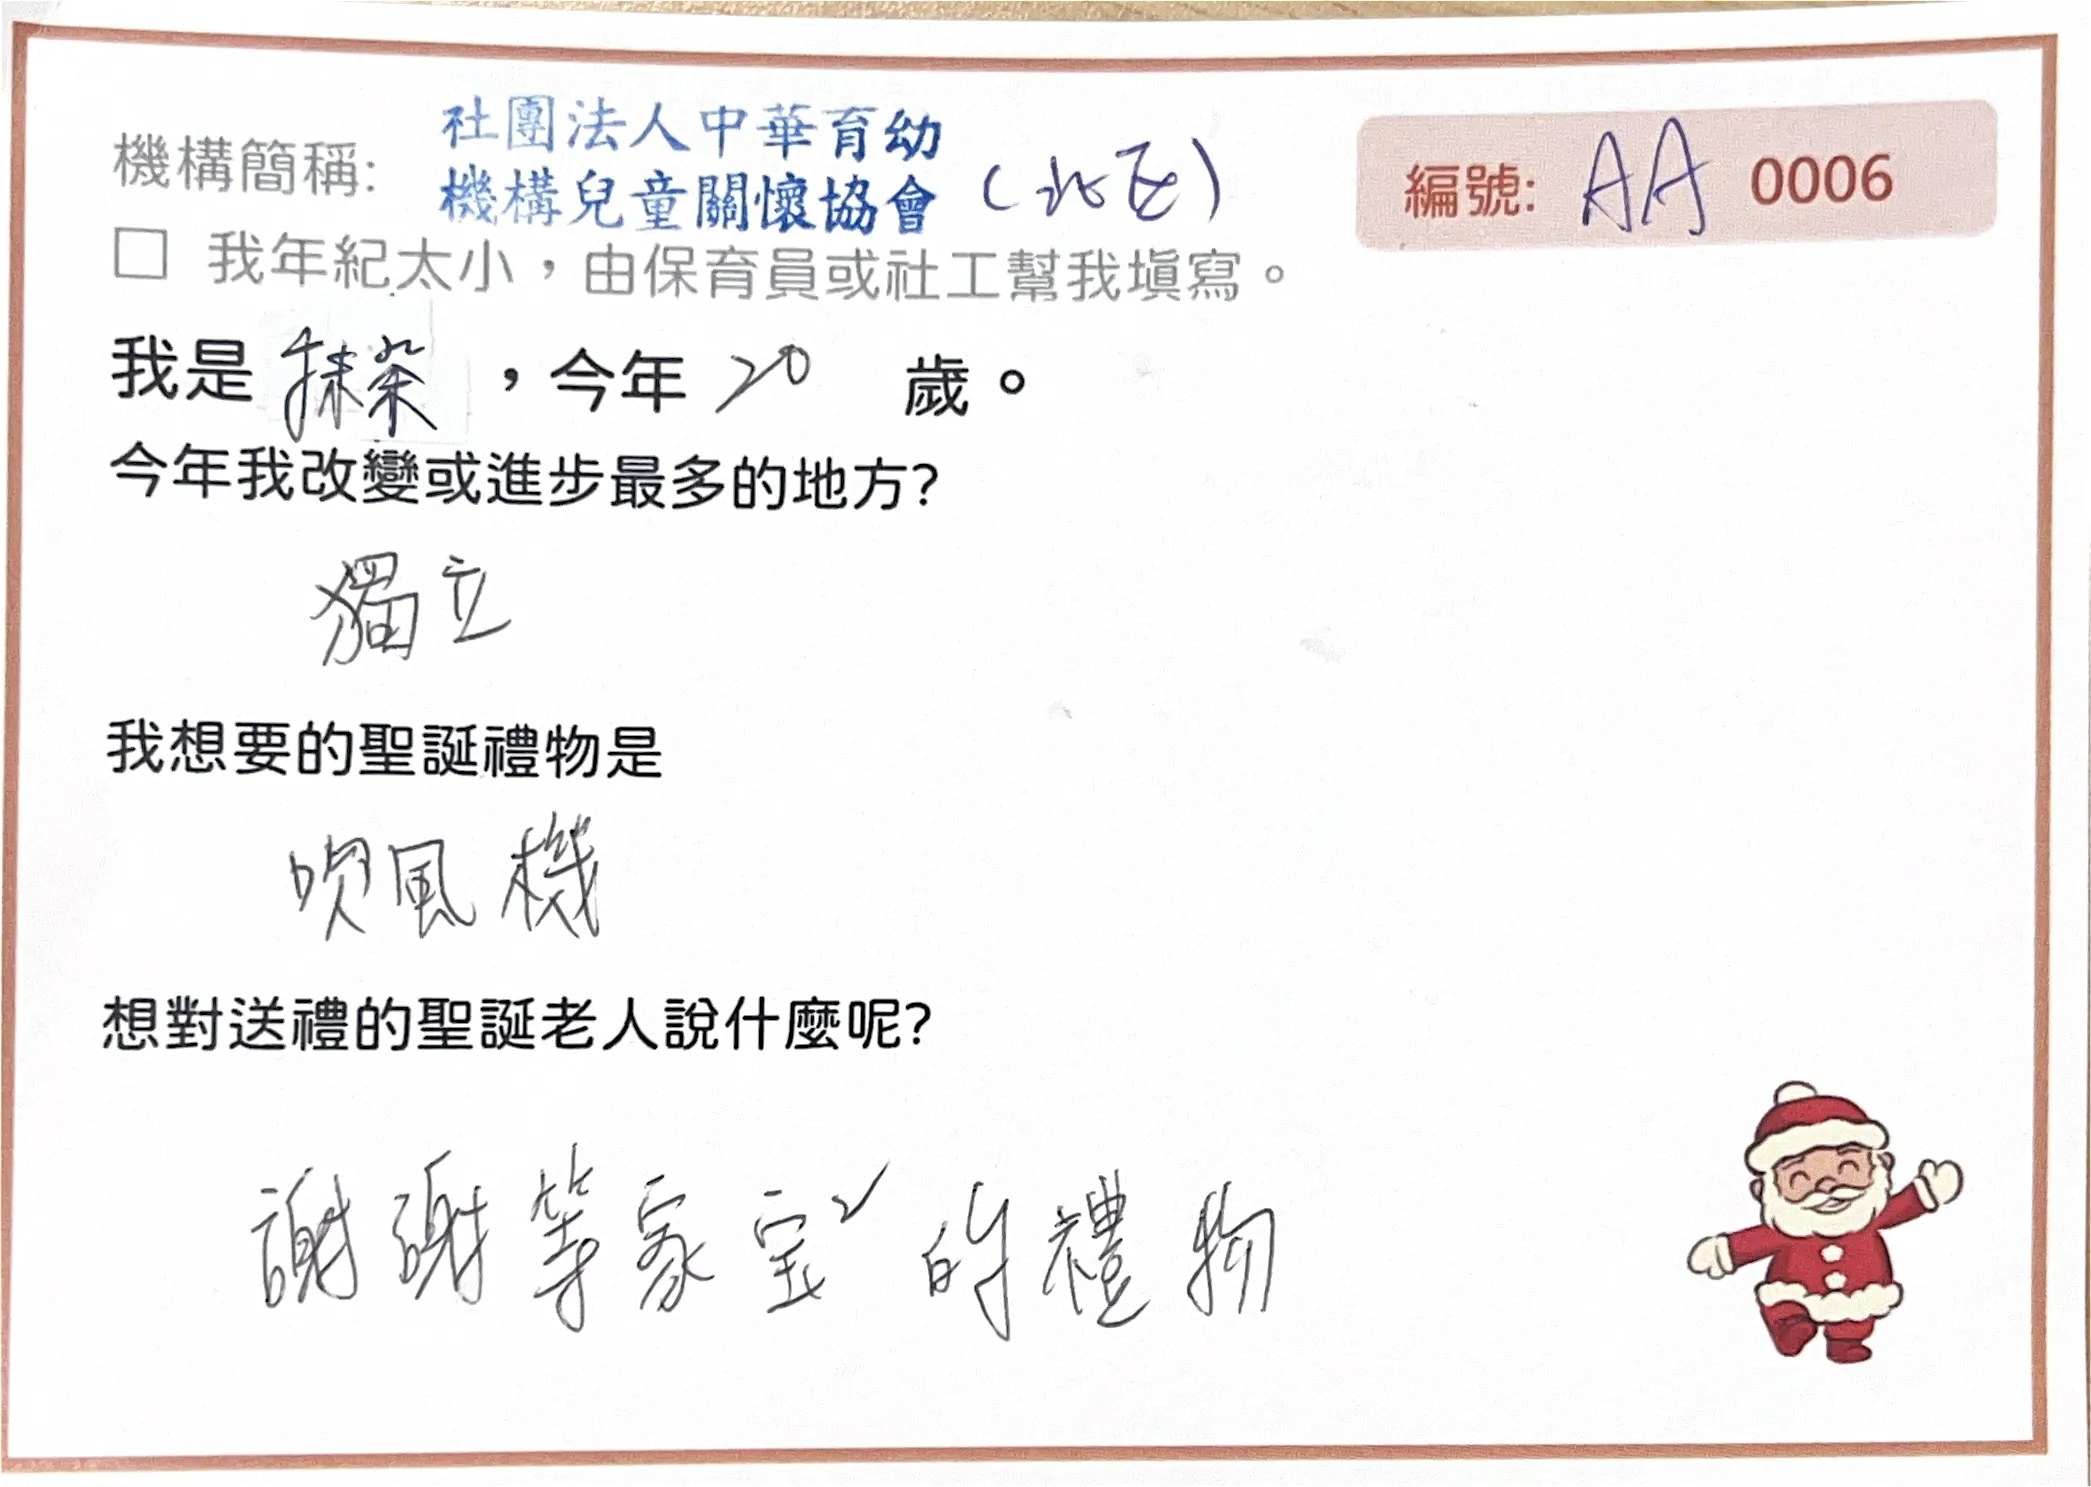 社團法人中華育幼
機構簡稱: 機構兒童關懷協會 (北區)
編號: AA 0006
□ 我年紀太小，由保育員或社工幫我填寫。
我是 抹茶 ，今年 20 歲。
今年我改變或進步最多的地方?
獨立
我想要的聖誕禮物是
吹風機
想對送禮的聖誕老人說什麼呢?
謝謝等家宝ˇ的禮物